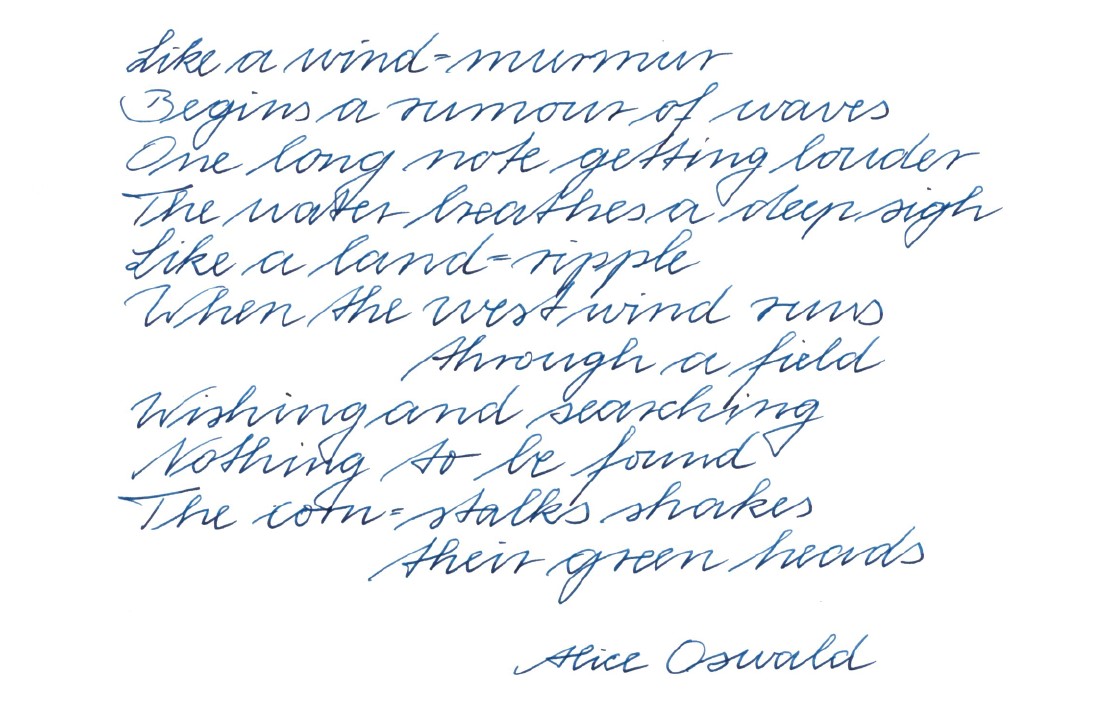 Like a wind-murmur
Begins a rumour of waves
One long note getting louder
The water breathes a deep sigh
Like a land-ripple
When the west wind runs
through a field
Wishing and searching
Nothing to be found
The corn-stalks shakes
their green heads
Alice Oswald